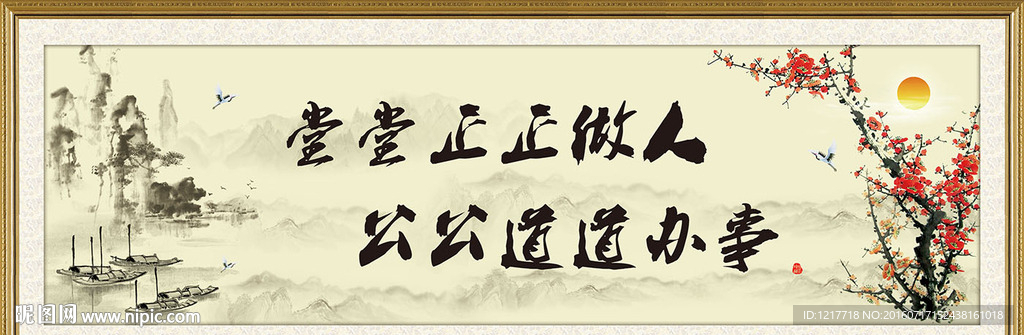 堂堂正正做人
公公道道办事
昵图网 www.nipic.com
ID:1217718 NO:20160717152438161018